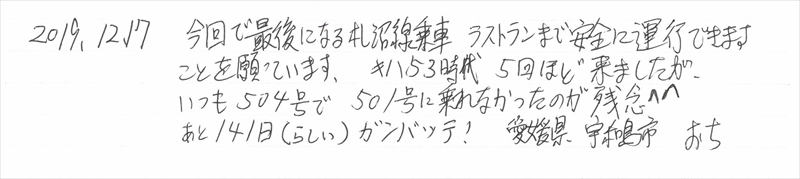 2019.12.17 今回で最後になる札沼線乗車 ラストランまで安全に運行できます
ことを願っています、キハ53時代 5回ほど来ましたが、
いつも504号で 501号に乗れなかったのが残念^^
あと141日(らしい)ガンバッテ! 愛媛県 宇和島市 おち